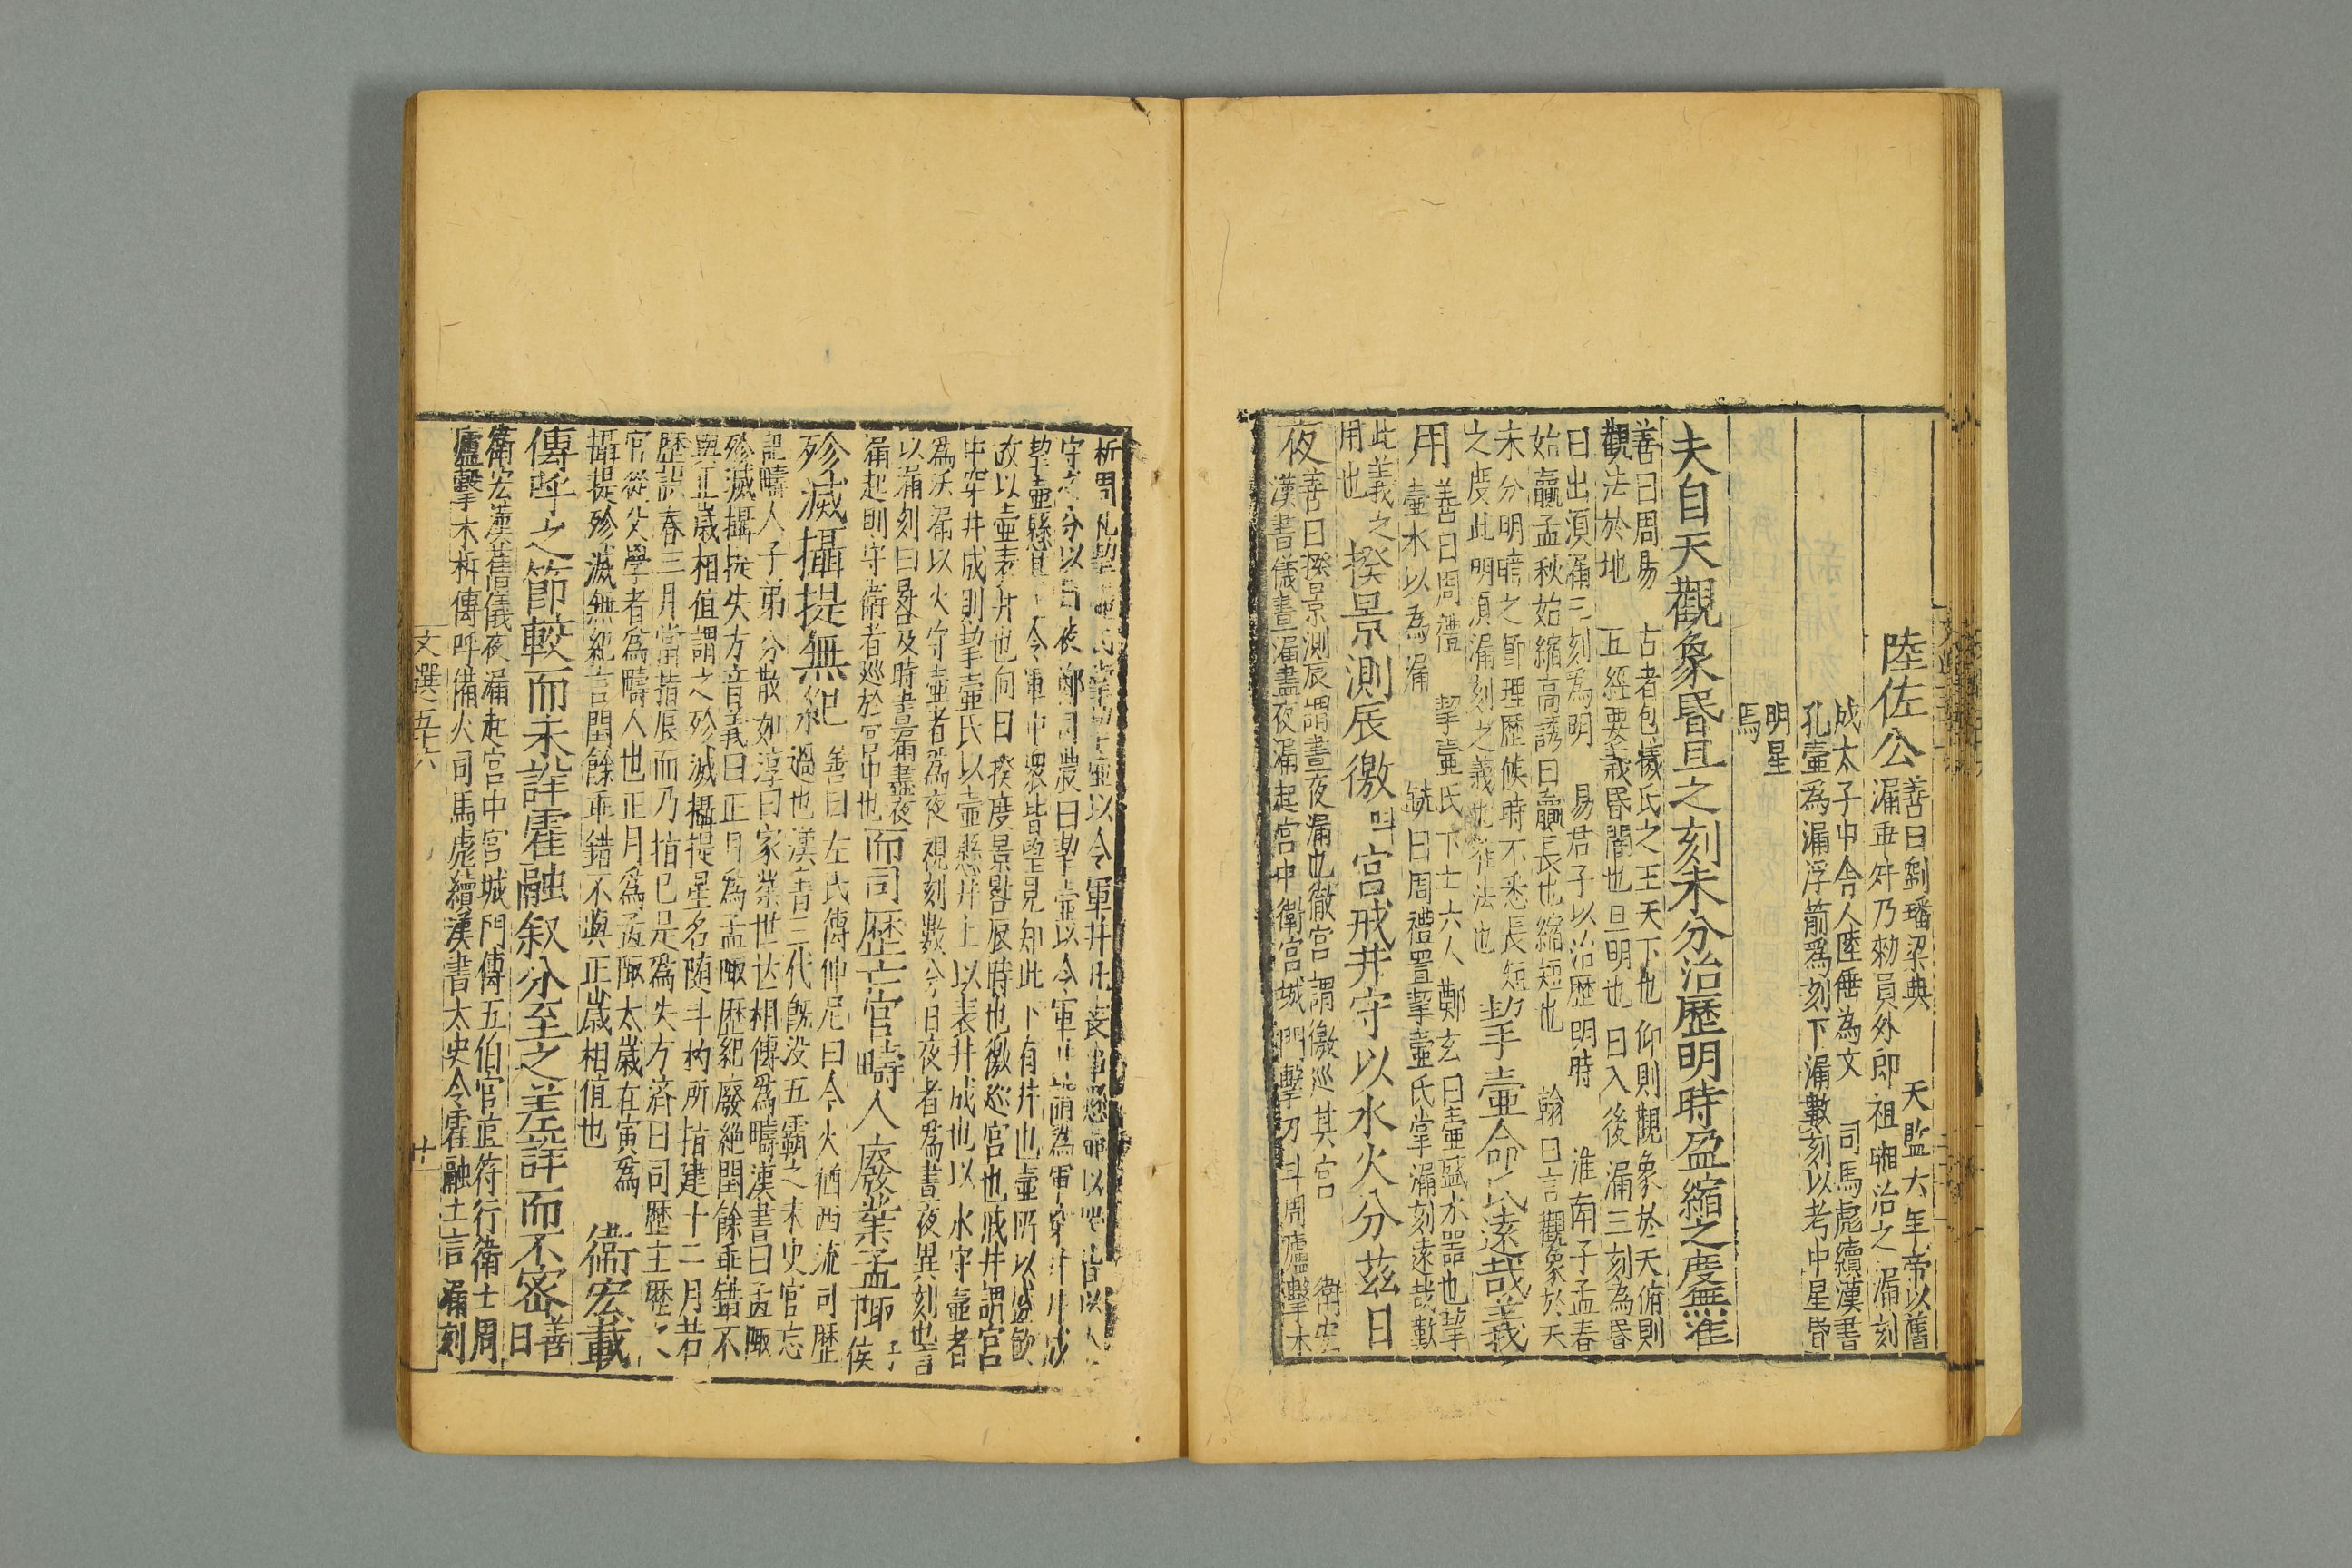 陸佐公
善曰劉璠梁典 天監六年帝以舊
漏乖舛乃勑員外郎祖暅治之漏刻
成太子中舍人陸倕為文 司馬彪續漢書
孔壷為漏浮箭為刻下漏數刻以考中星昏
明星
焉
夫自天觀象昏旦之刻未分治歷明時盈縮之度無準
善曰周易 古者包犧氏之王天下也 仰則觀象於天俯則
觀法於地 五經要義昏闇也旦明也 日入後漏三刻為昏
日出湏漏三刻為明 易君子以治歷明時 淮南子孟春
始贏孟秋始縮高誘曰贏長也縮短也 翰曰言觀象於天
未分明暗之節理歷候時不悉長短
之度此明湏漏刻之義也 法也
挈壷命氏遠哉義
用
善曰周禮 挈壷氏下士六人 鄭玄曰壷盛水器也挈
壷水以為漏 銑曰周禮置挈壷氏掌漏刻遠哉歎
此義之
用也
揆景測辰徼宮戒井守以水火分茲日
夜
善曰揆景測辰謂晝夜漏也徼宮 謂徼巡其宮 衛宏
漢書儀晝漏盡夜漏起宮中衛宮城門擊刀斗周廬擊木
柝周 挈 壷以令軍井 以
守之分以日夜鄭司農曰挈壷以令軍井謂為軍穿井井成
挈壷縣其 令軍中衆皆望見知此下有井也壷所以盛飲
故以壷表井也向曰揆度景晷辰時也徼巡宮也戒井謂宮
中穿井成則挈壷氏以壷懸井上以表井成也以水守壷者
為沃漏以火守壷者為夜視刻數分日夜者為晝夜異刻也言
以漏刻曰晷及時晝漏盡夜
漏起則守衛者巡於宮中也
而司歷亡官疇人廢業孟陬
殄滅攝提無紀
善曰左氏傳仲尼曰今火猶西流司歷
過也漢書三代既没五霸之末史官忘
記疇人子弟分散如淳曰家業世世相傳為疇漢書曰孟陬
殄滅攝提失方音義曰正月為孟陬歷紀廢絶閏餘乖錯不
與正歲相值謂之殄滅攝提星名随斗杓所指建十二月若
歷誤春三月當指辰而乃指巳是為失方濟曰司歷主歷之
官從父學者為疇人也正月為孟陬太歲在寅為
攝提殄滅無紀言閏餘乖錯不與正歲相值也
衞宏載
傳呼之節較而未詳霍融叙分至之差詳而不密
善
曰
衛宏漢舊儀夜漏起宮中宮城門傳五伯官直符行行衛士周
廬擊木柝傳呼備火司馬彪續漢書太史令霍融上言漏刻
文選五十六
廿一